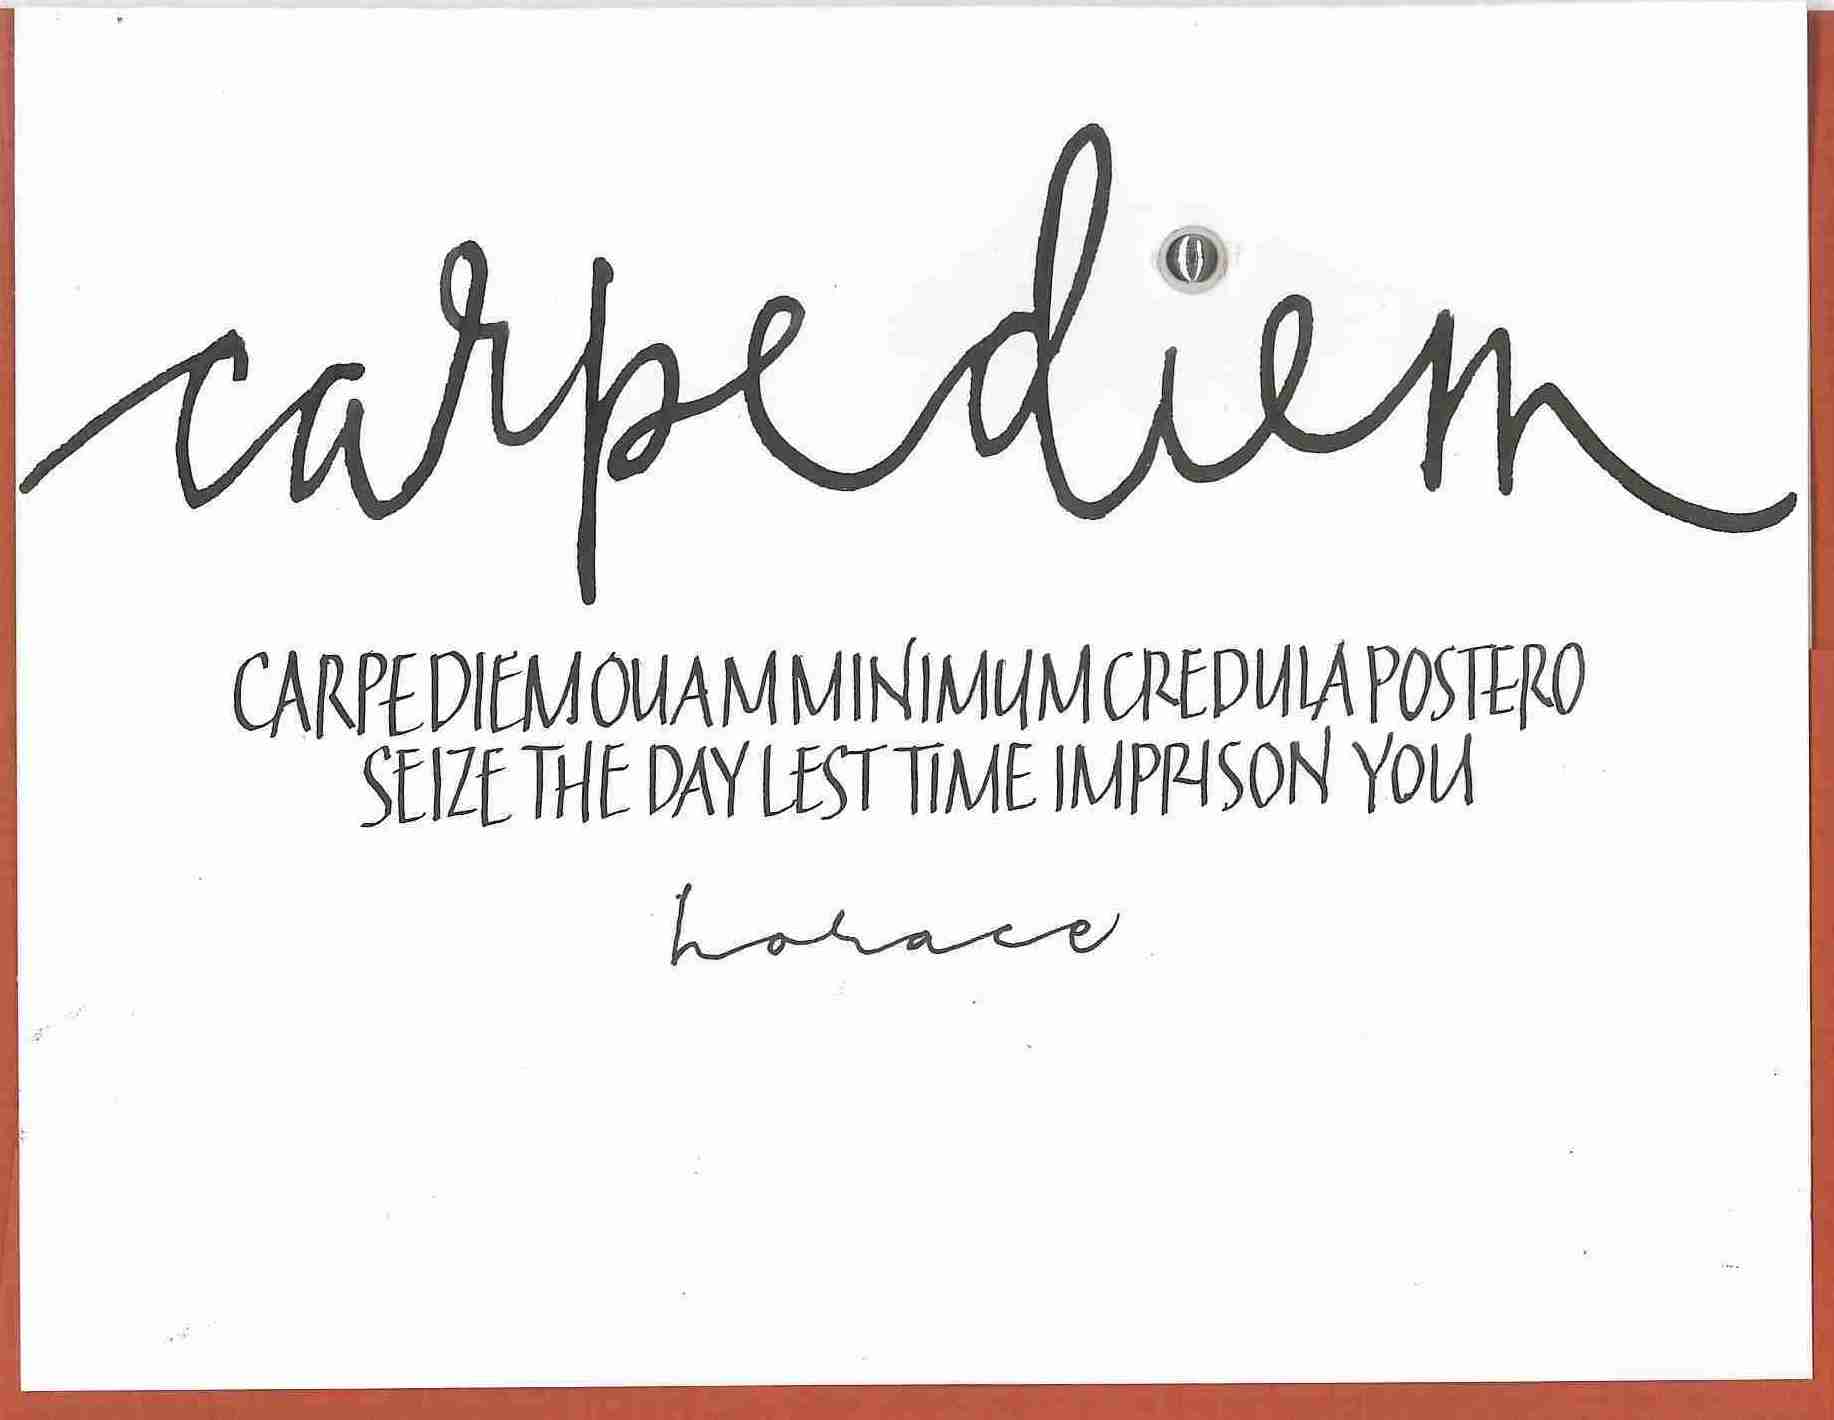 carpe diem
CARPE DIEM OUAM MINIMUM CREDULA POSTERO
SEIZE THE DAY LEST TIME IMPRISON YOU
horace